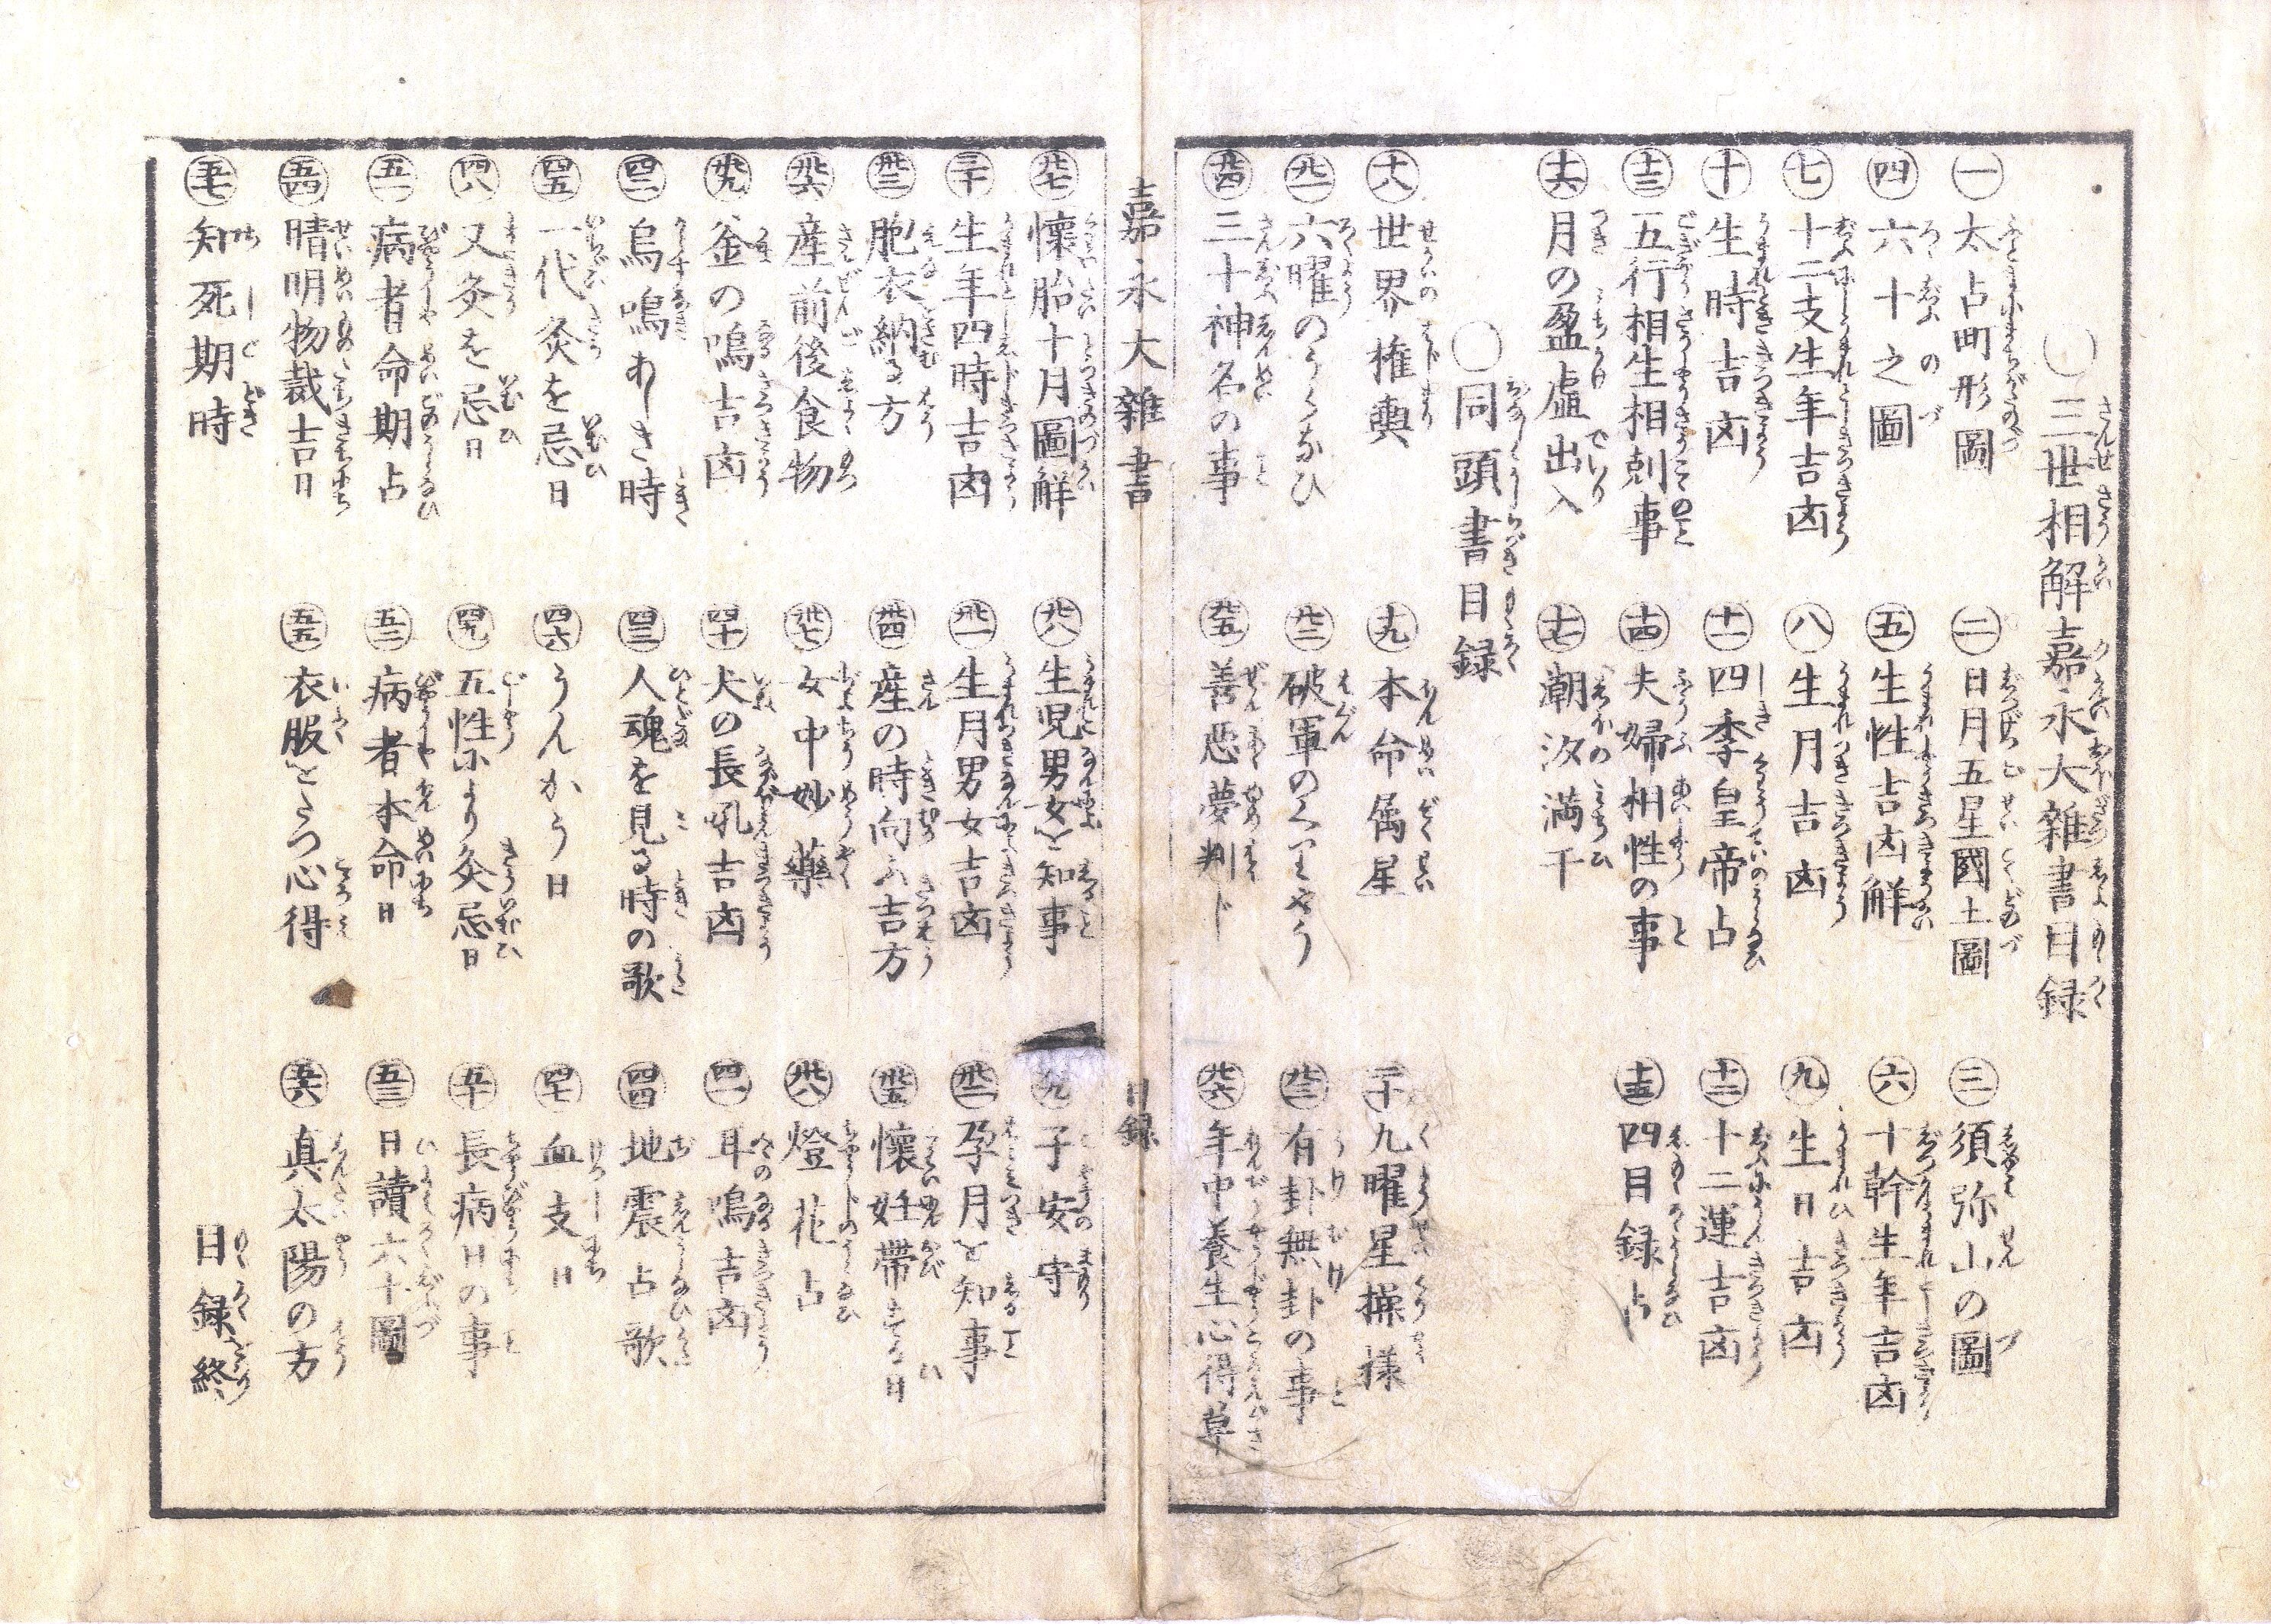 〇三世相解嘉永大雜書目録
一 太占町形圖
二 日月五星國土圖
三 須弥山の圖
四 六十之圖
五 生性吉凶解
六 十幹生年吉凶
七 十二支生年吉凶
八 生月吉凶
九 生日吉凶
十 生時吉凶
十一 四季皇帝占
十二 十二運吉凶
十三 五行相生相剋事
十四 夫婦相性の事
十五 四目録占
十六 月の盈虚出入
十七 潮汐満干
〇同頭書目録
十八 世界権輿
十九 本命属星
二十 九曜星操様
廿一 六曜のうらなひ
廿二 破軍のくりやう
廿三 有卦無卦の事
廿四 三十神名の事
廿五 善悪夢判じ
廿六 年中養生心得草
嘉永大雜書
目録
廿七 懐胎十月圖解
廿八 生児男女を知事
廿九 子安守
三十 生年四時吉凶
卅一 生月男女吉凶
卅二 孕月を知事
卅三 胞衣納る方
卅四 産の時向ふ吉方
卅五 懐妊帯する日
卅六 産前後食物
卅七 女中妙藥
卅八 燈花占
卅九 釜の鳴吉凶
四十 犬の長吼吉凶
四一 耳鳴吉凶
四二 烏鳴あしき時
四三 人魂を見る時の歌
四四 地震占歌
四五 一代灸を忌日
四六 うんかう日
四七 血支日
四八 又灸を忌日
四九 五性により灸忌日
五十 長病日の事
五一 病者命期占
五二 病者本命日
五三 日讀六十圖
五四 晴明物裁吉日
五五 衣服をたつ心得
五六 真太陽の方
五七 知死期時
目録終